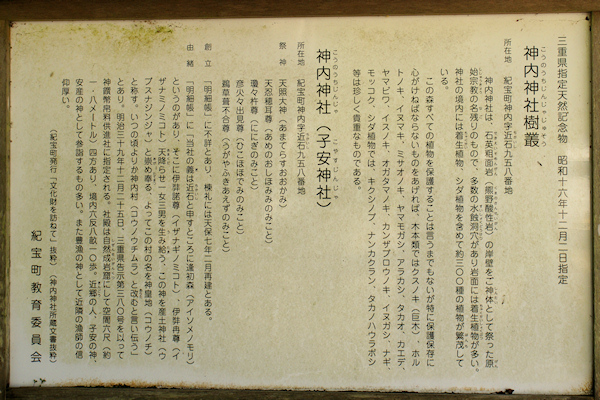 三重県指定天然記念物　昭和十六年十二月二日指定
神内神社樹叢
こうのうちじんじゃじゅそう
所在地　紀宝町神内字近石九五八番地
神内神社は、石英粗面岩（熊野酸性岩）の岸壁をご神体として祭った原
始宗教の名残りのもので、多数の水蝕洞穴があり岩面には着生植物が多い。
神社の境内には着生植物、シダ植物を含めて約三〇〇種の植物が繁茂して
いる。
この森すべての植物を保護することは言うまでもないが特に保護保存に
心がけねばならないものをあげれば、木本類ではクスノキ（巨木）、ホル
トノキ、イヌマキ、ミサオノキ、ヤマモガシ、アラカシ、タカオ、カエデ、
ヤマビワ、イスノキ、オガタマノキ、カンザブロウノキ、イヌガシ、ナギ、
モッコク、シダ植物ではキクシノブ、ナンカクラン、タカノハウラボシ
等は珍しく貴重なものである。
神内神社（子安神社）
こうのうちじんじゃ　こやすじんじゃ
所在地　紀宝町神内字近石九五八番地
祭　神　天照大神（あまてらすおおかみ）
天忍穂耳尊（あめのおしほみみのみこと）
瓊々杵尊（ににぎのみこと）
彦火々出見尊（ひこほほでみのみこと）
鵜草葺不合尊（うがやふきあえずのみこと）
創　立　「明細帳」に不詳とあり、棟札には天保七年二月再建とある。
由　緒　「明細帳」に「当社の義は近石と申すところに逢初森（アイソメノモリ）
というのがあり、そこに伊弉諾尊（イザナギノミコト）、伊弉冉尊（イ
ザナミノミコト）天降らせ一女三男を生み給う、この神を産土神社（ウ
ブスナジンジャ）と崇め奉る、よってこの村の名を神皇地（コウノチ）
と称す。いつの頃よりか神内村（コウノウチムラ）と改むと言い伝う」
とあり。明治三十九年十二月二十五日、三重県告示第三八〇号を以って
神饌幣帛料供進社に指定される。社殿は自然成岩窟にして空間六尺（約
一・八メートル）四方あり、境内六反八畝一〇歩。近郷の人、子安の神、
安産の神として参詣するもの多い。また豊漁の神として近隣の漁師の信
仰厚い。
（紀宝町発行「文化財を訪ねて」抜粋）（神内神社所蔵文書抜粋）
紀宝町教育委員会